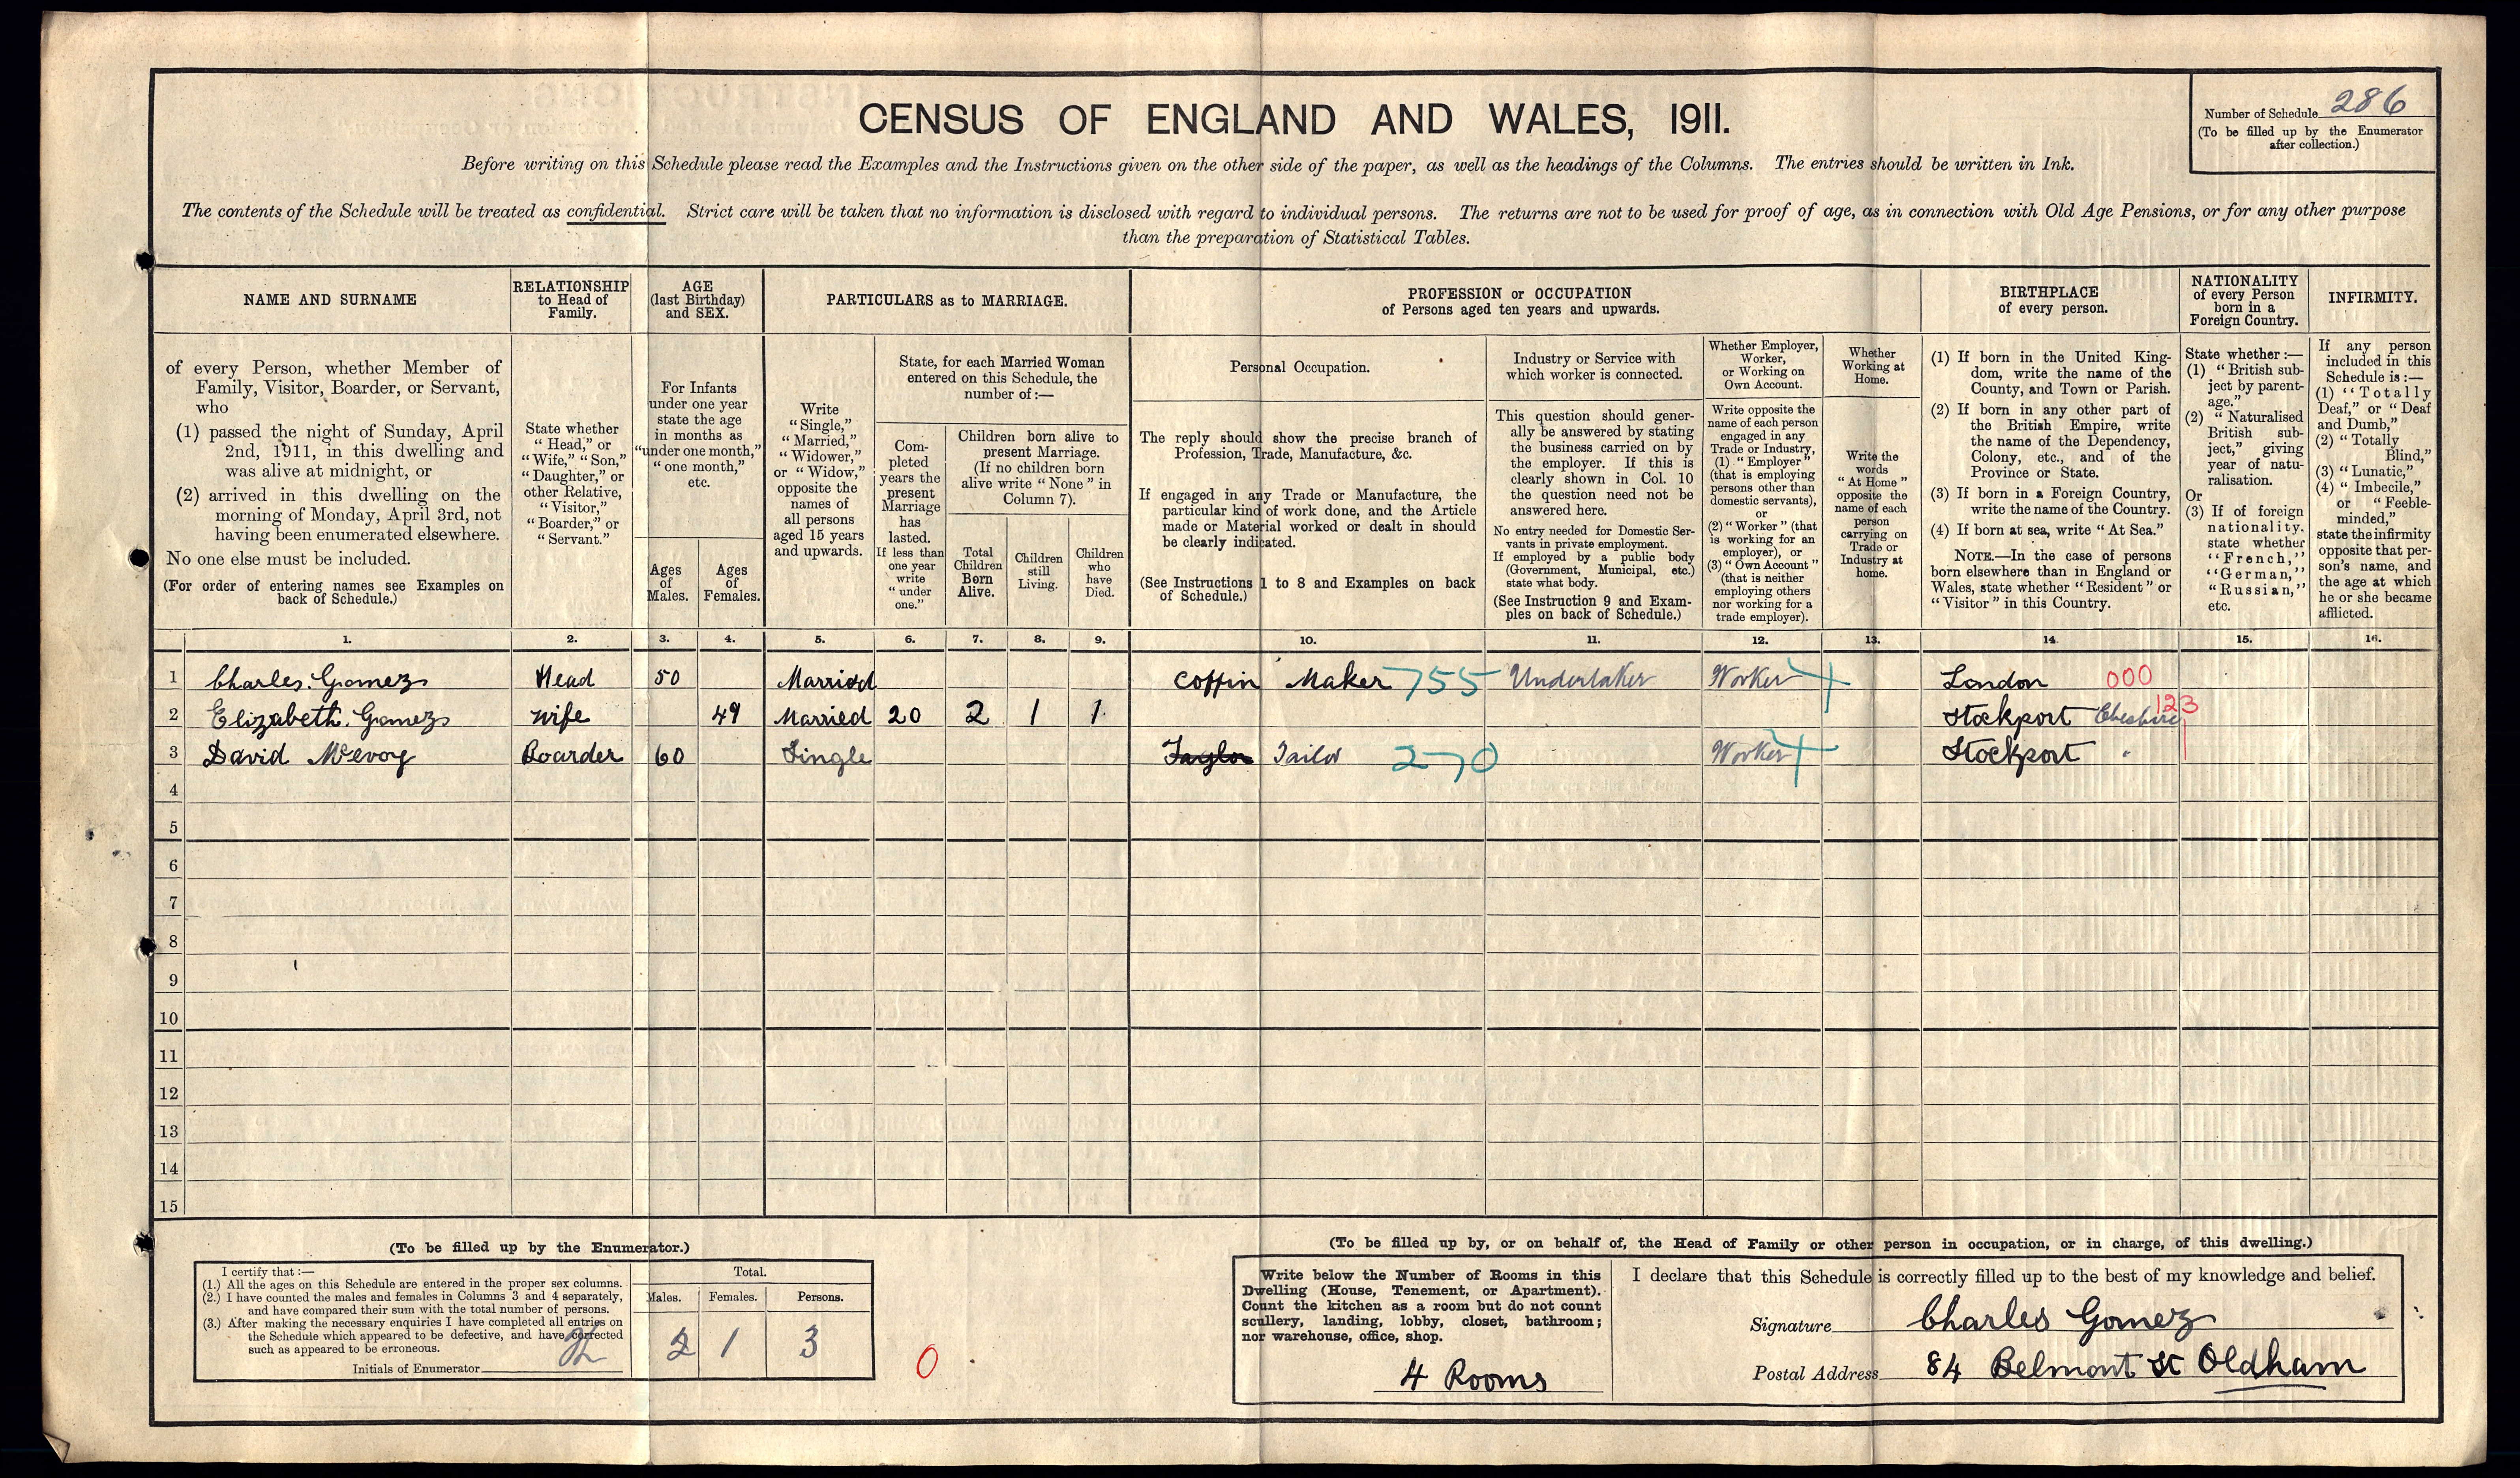 CENSUS OF ENGLAND AND WALES, 1911.
Number of Schedule 286
(To be filled up by the Enumerator
after collection.)
Before writing on this Schedule please read the Examples and the Instructions given on the other side of the paper, as well as the headings of the Columns. The entries should be written in Ink.
The contents of the Schedule will be treated as confidential. Strict care will be taken that no information is disclosed with regard to individual persons. The returns are not to be used for proof of age, as in connection with Old Age Pensions, or for any other purpose
than the preparation of Statistical Tables.
NAME AND SURNAME
of every Person, whether Member of
Family, Visitor, Boarder, or Servant,
who
(1) passed the night of Sunday, April
2nd, 1911, in this dwelling and
was alive at midnight, or
(2) arrived in this dwelling on the
morning of Monday, April 3rd, not
having been enumerated elsewhere.
No one else must be included.
(For order of entering names see Examples on
back of Schedule.)
RELATIONSHIP
to Head of
Family.
State whether
"Head," or
"Wife," "Son,"
"Daughter," or
other Relative,
"Visitor,"
"Boarder," or
"Servant."
AGE
(last Birthday)
and SEX.
For Infants
under one year
state the age
in months as
"under one month,"
"one month,"
etc.
Ages
of
Males.
Ages
of
Females.
PARTICULARS as to MARRIAGE.
Write
"Single,"
"Married,"
"Widower,"
or "Widow,"
opposite the
names of
all persons
aged 15 years
and upwards.
State, for each Married Woman
entered on this Schedule, the
number of:—
Com-
pleted
years the
present
Marriage
has
lasted.
If less than
one year
write
"under
one."
Children born alive to
present Marriage.
(If no children born
alive write "None" in
Column 7).
Total
Children
Born
Alive.
Children
still
Living.
Children
who
have
Died.
PROFESSION or OCCUPATION
of Persons aged ten years and upwards.
Personal Occupation.
The reply should show the precise branch of
Profession, Trade, Manufacture, &c.
If engaged in any Trade or Manufacture, the
particular kind of work done, and the Article
made or Material worked or dealt in should
be clearly indicated.
(See Instructions 1 to 8 and Examples on back
of Schedule.)
Industry or Service with
which worker is connected.
This question should gener-
ally be answered by stating
the business carried on by
the employer. If this is
clearly shown in Col. 10
the question need not be
answered here.
No entry needed for Domestic Ser-
vants in private employment.
If employed by a public body
(Government, Municipal, etc.)
state what body.
(See Instruction 9 and Exam-
ples on back of Schedule.)
Whether Employer,
Worker,
or Working on
Own Account.
Write opposite the
name of each person
engaged in any
Trade or Industry,
(1) "Employer"
(that is employing
persons other than
domestic servants),
or
(2) "Worker" (that
is working for an
employer), or
(3) "Own Account"
(that is neither
employing others
nor working for a
trade employer).
Whether
Working at
Home.
Write the
words
"At Home"
opposite the
name of each
person
carrying on
Trade or
Industry at
home.
BIRTHPLACE
of every person.
(1) If born in the United King-
dom, write the name of the
County, and Town or Parish.
(2) If born in any other part of
the British Empire, write
the name of the Dependency,
Colony, etc., and of the
Province or State.
(3) If born in a Foreign Country,
write the name of the Country.
(4) If born at sea, write "At Sea."
NOTE.—In the case of persons
born elsewhere than in England or
Wales, state whether "Resident" or
"Visitor" in this Country.
NATIONALITY
of every Person
born in a
Foreign Country.
State whether:—
(1) "British sub-
ject by parent-
age."
(2) "Naturalised
British sub-
ject," giving
year of natu-
ralisation.
Or
(3) If of foreign
nationality,
state whether
"French,"
"German,"
"Russian,"
etc.
INFIRMITY.
If any person
included in this
Schedule is:—
(1) "Totally
Deaf," or "Deaf
and Dumb,"
(2) "Totally
Blind,"
(3) "Lunatic,"
(4) "Imbecile,"
or "Feeble-
minded,"
state the infirmity
opposite that per-
son's name, and
the age at which
he or she became
afflicted.
1. 2. 3. 4. 5. 6. 7. 8. 9. 10. 11. 12. 13. 14. 15. 16.
1 Charles. Gomez Head 50 Married Coffin Maker 755 Undertaker Worker 4 London 000
2 Elizabeth. Gomez Wife 49 Married 20 2 1 1 Stockport Cheshire 123
3 David McEvoy Boarder 60 Single Taylor Tailor 270 Worker 4 Stockport "
4
5
6
7
8
9
10
11
12
13
14
15
(To be filled up by the Enumerator.)
I certify that:—
(1.) All the ages on this Schedule are entered in the proper sex columns.
(2.) I have counted the males and females in Columns 3 and 4 separately,
and have compared their sum with the total number of persons.
(3.) After making the necessary enquiries I have completed all entries on
the Schedule which appeared to be defective, and have corrected
such as appeared to be erroneous.
Initials of Enumerator
Total.
Males. Females. Persons.
2 1 3
0
(To be filled up by, or on behalf of, the Head of Family or other person in occupation, or in charge, of this dwelling.)
Write below the Number of Rooms in this
Dwelling (House, Tenement, or Apartment).
Count the kitchen as a room but do not count
scullery, landing, lobby, closet, bathroom;
nor warehouse, office, shop.
4 Rooms
I declare that this Schedule is correctly filled up to the best of my knowledge and belief.
Signature Charles Gomez
Postal Address 84 Belmont St Oldham